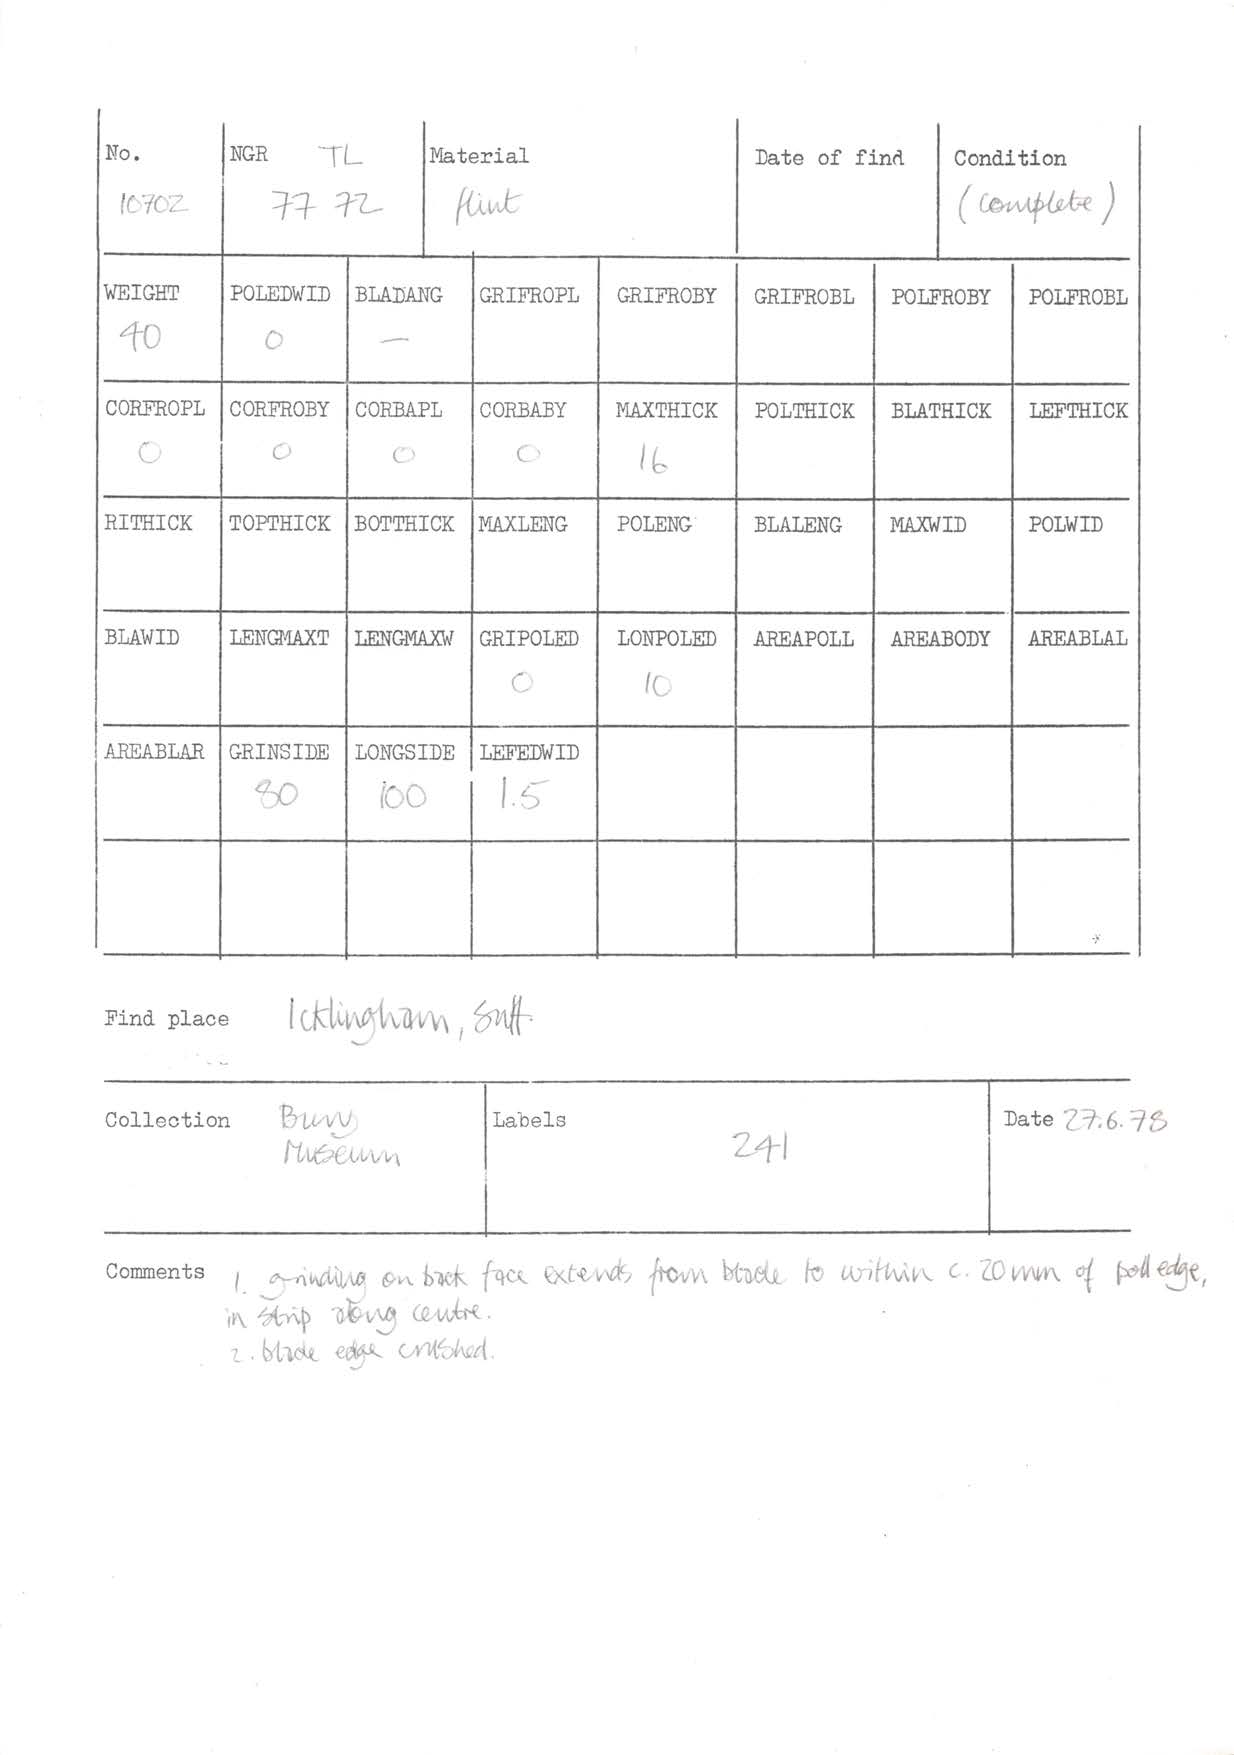 No. NGR TL Material Date of find Condition
10702 77 72 flint (complete)
WEIGHT POLEDWID BLADANG GRIFROPL GRIFROBY GRIFROBL POLFROBY POLFROBL
40 0 —
CORFROPL CORFROBY CORBAPL CORBABY MAXTHICK POLTHICK BLATHICK LEFTHICK
0 0 0 0 16
RITHICK TOPTHICK BOTTHICK MAXLENG POLENG BLALENG MAXWID POLWID
BLAWID LENGMAXT LENGMAXW GRIPOLED LONPOLED AREAPOLL AREABODY AREABLAL
0 10
AREABLAR GRINSIDE LONGSIDE LEFEDWID
80 100 1.5
Find place Icklingham, Suff.
Collection Bury Labels Date 27.6.78
Museum 241
Comments 1. grinding on back face extends from blade to within c. 20mm of poll edge,
in strip along centre.
2. blade edge crushed.